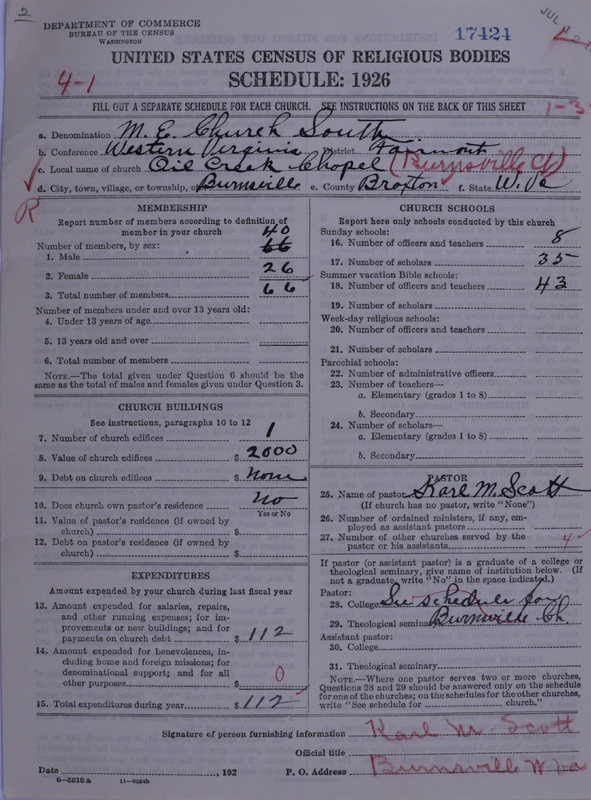 2
DEPARTMENT OF COMMERCE
BUREAU OF THE CENSUS
WASHINGTON
17424
JUL
UNITED STATES CENSUS OF RELIGIOUS BODIES
SCHEDULE: 1926
4-1
FILL OUT A SEPARATE SCHEDULE FOR EACH CHURCH. SEE INSTRUCTIONS ON THE BACK OF THIS SHEET
1-3
a. Denomination M. E. Church South
b. Conference Western Virginia District Fairmont
c. Local name of church Oil Creek Chapel (Burnsville Ch)
d. City, town, village, or township, of Burnsville e. County Braxton f. State W. Va
R
MEMBERSHIP
Report number of members according to definition of
member in your church
Number of members, by sex: 40
1. Male 66
2. Female 26
3. Total number of members 66
Number of members under and over 13 years old:
4. Under 13 years of age
5. 13 years old and over
6. Total number of members
NOTE.—The total given under Question 6 should be the
same as the total of males and females given under Question 3.
CHURCH BUILDINGS
See instructions, paragraphs 10 to 12
7. Number of church edifices 1
8. Value of church edifices $ 2000
9. Debt on church edifices $ None
10. Does church own pastor's residence No
Yes or No
11. Value of pastor's residence (if owned by
church) $
12. Debt on pastor's residence (if owned by
church) $
EXPENDITURES
Amount expended by your church during last fiscal year
13. Amount expended for salaries, repairs,
and other running expenses; for im-
provements or new buildings; and for
payments on church debt $ 112
14. Amount expended for benevolences, in-
cluding home and foreign missions; for
denominational support; and for all
other purposes $ 0
15. Total expenditures during year $ 112
CHURCH SCHOOLS
Report here only schools conducted by this church
Sunday schools:
16. Number of officers and teachers 8
17. Number of scholars 35
Summer vacation Bible schools:
18. Number of officers and teachers 43
19. Number of scholars
Week-day religious schools:
20. Number of officers and teachers
21. Number of scholars
Parochial schools:
22. Number of administrative officers
23. Number of teachers—
a. Elementary (grades 1 to 8)
b. Secondary
24. Number of scholars—
a. Elementary (grades 1 to 8)
b. Secondary
PASTOR
25. Name of pastor Karl M. Scott
(If church has no pastor, write "None")
26. Number of ordained ministers, if any, em-
ployed as assistant pastors
27. Number of other churches served by the
pastor or his assistants 4
If pastor (or assistant pastor) is a graduate of a college or
theological seminary, give name of institution below. (If
not a graduate, write "No" in the space indicated.)
Pastor:
28. College See schedule for
29. Theological seminary Burnsville Ch.
Assistant pastor:
30. College
31. Theological seminary
NOTE.—Where one pastor serves two or more churches,
Questions 28 and 29 should be answered only on the schedule
for one of the churches; on the schedules for the other churches,
write "See schedule for church."
Signature of person furnishing information Karl M. Scott
Official title
Date , 192 P. O. Address Burnsville W Va
8-5518a 11-9054b